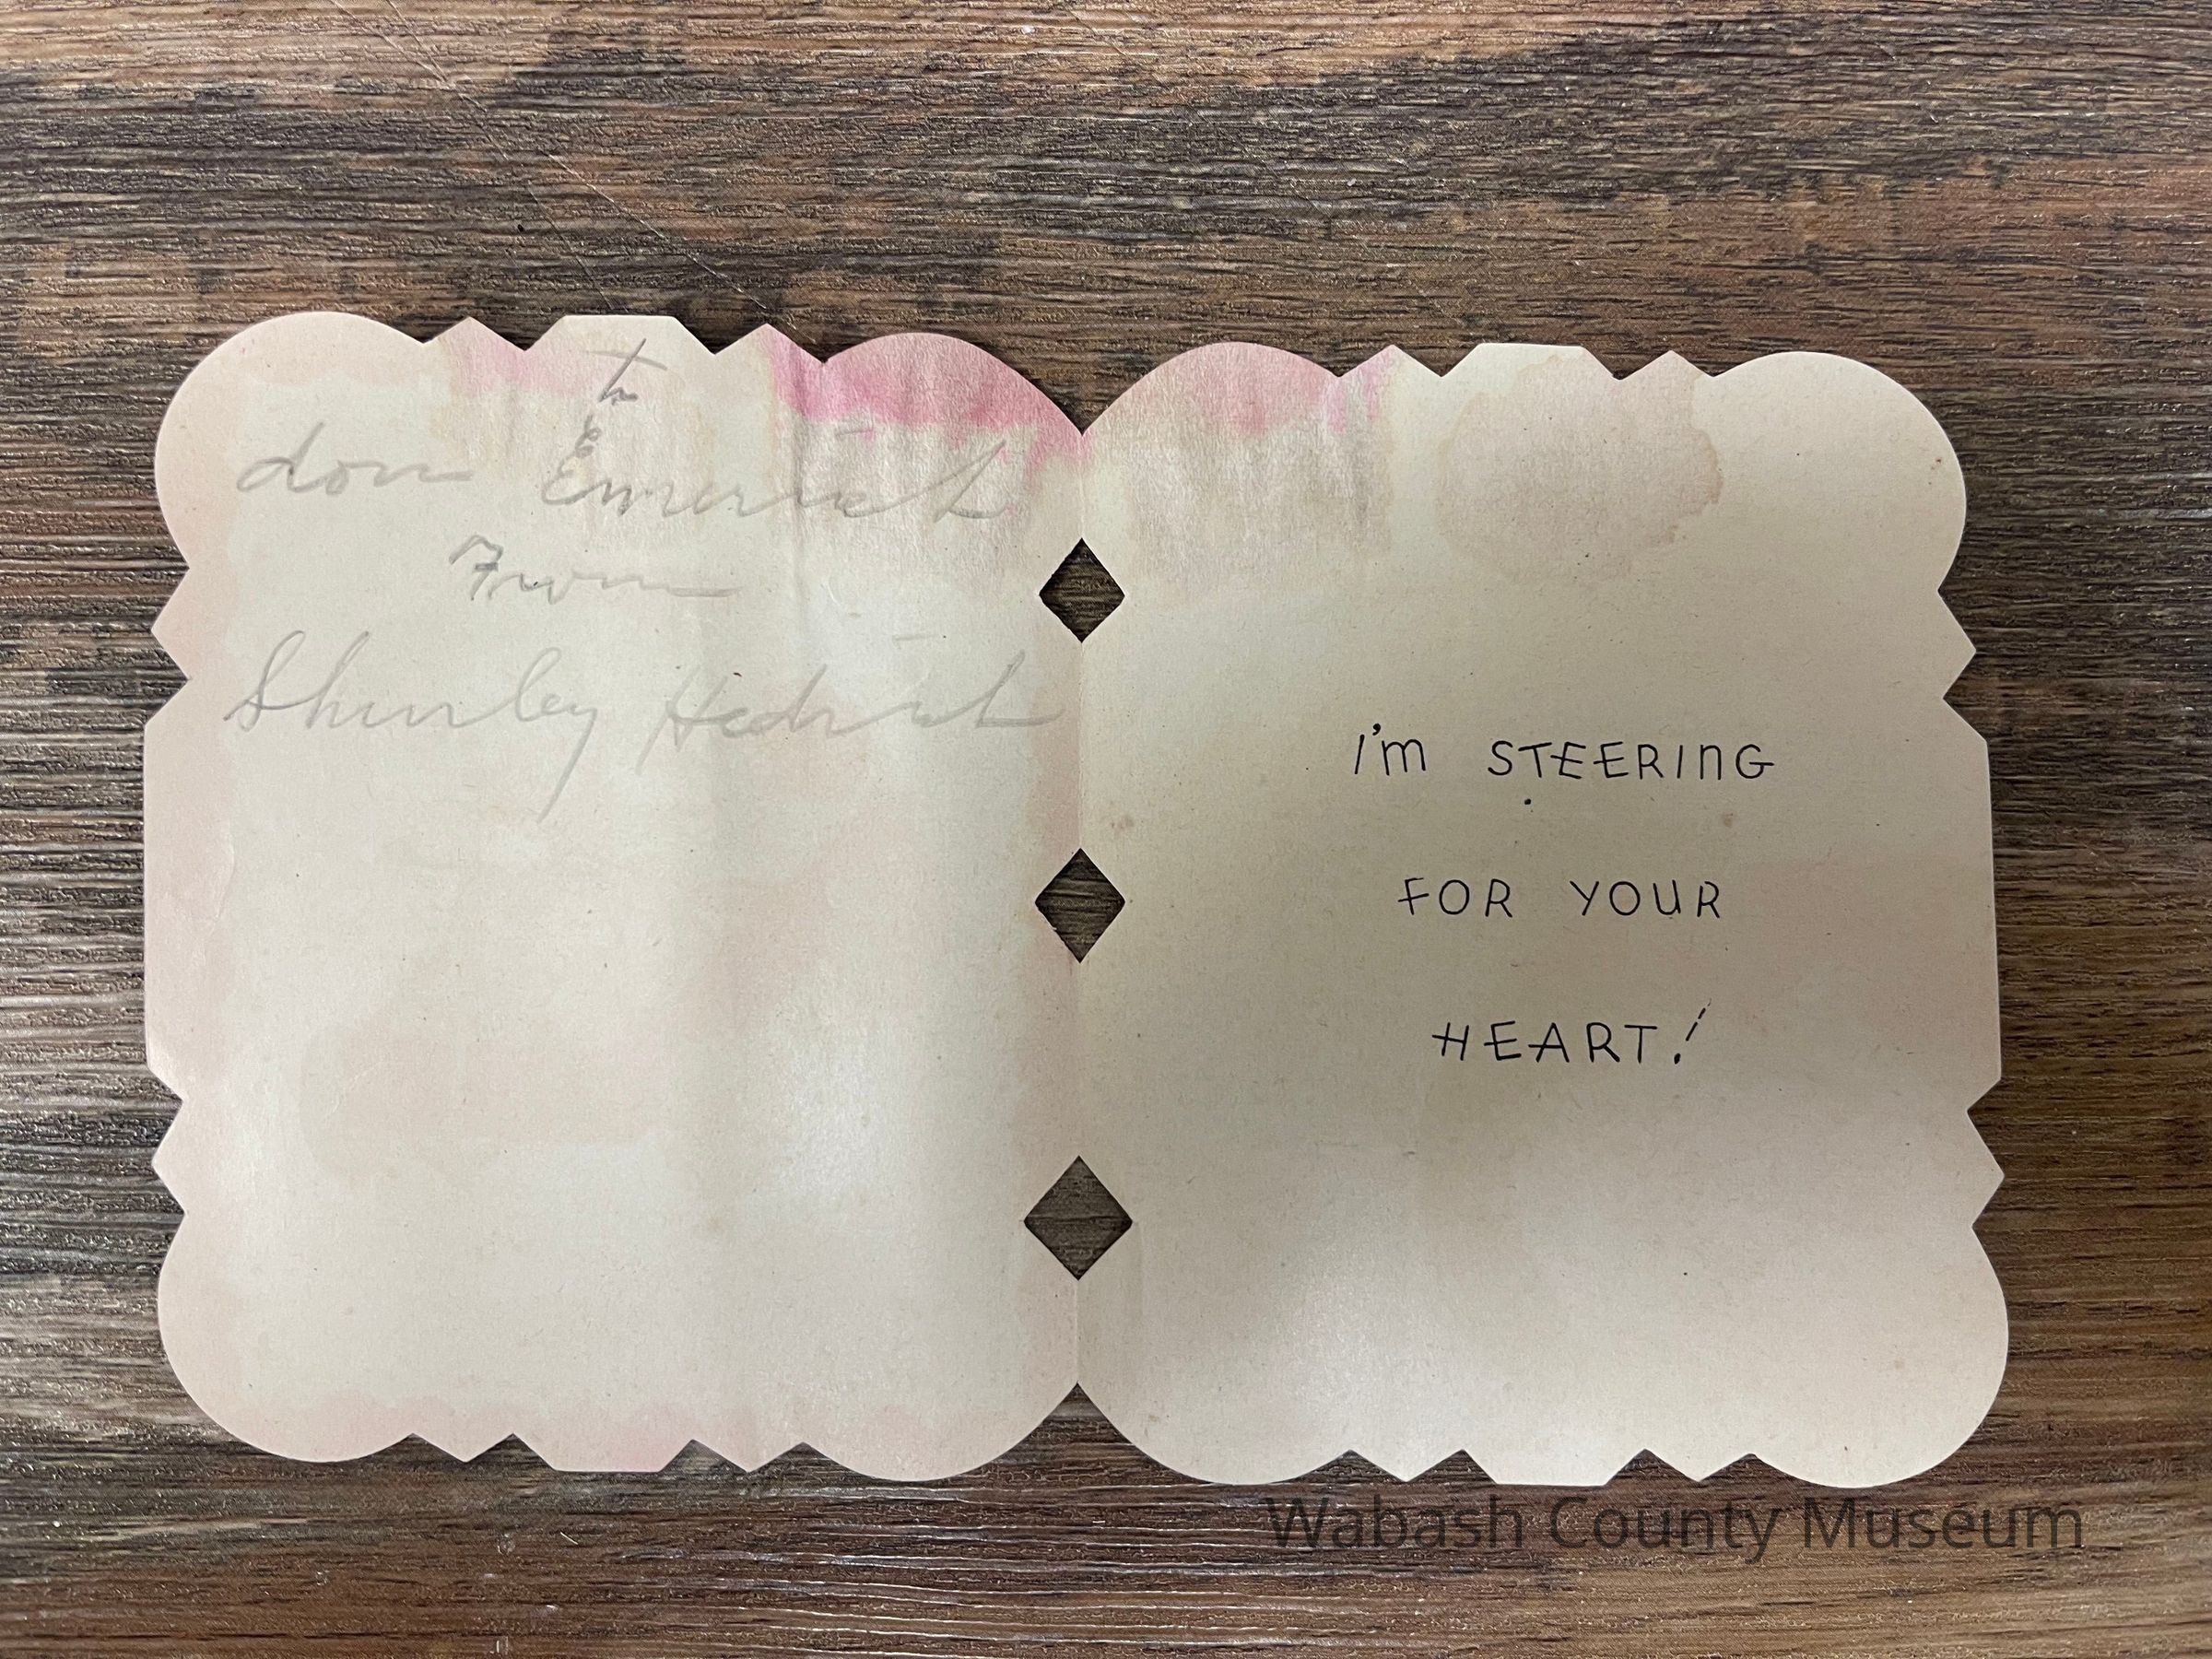 to
don Emerick
From
Shirley Hedrick
I'm STEERING
FOR YOUR
HEART!
Wabash County Museum